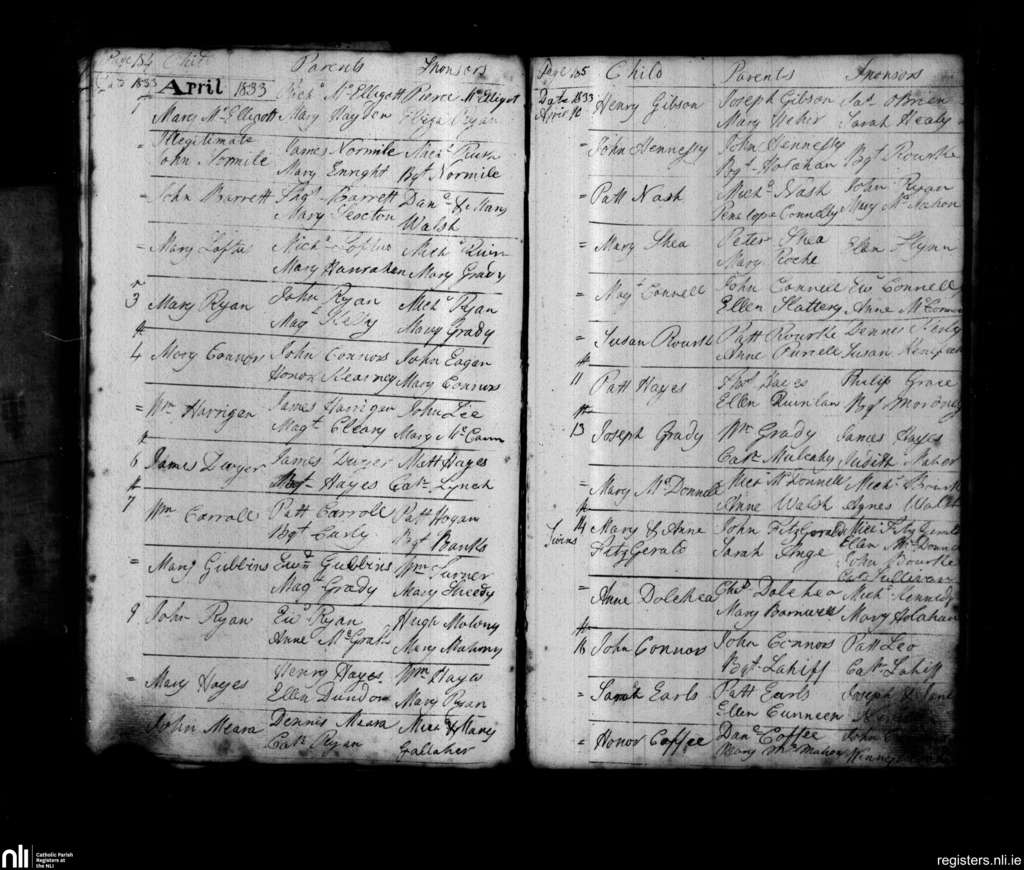 Page 184 Child Parents Sponsors
1833 April 1833 Mich.d McElligott Pierce McElligot
1 Mary McElligott Mary Hayden Eliza Ryan
Illegitimate James Normile Mich.l
= John Normile Mary Enright Bgt Normile
= John Barrett Tho.s Barrett Dan.l & Mary
Mary Walsh
= Mary Loftus Mich.l Loftus Mich.l Quin
Mary Hanrahan Mary Grady
3 Mary Ryan John Ryan Mich.l Ryan
Magt Kelly Mary Grady
4 Mary Connors John Connors John Eagan
Honor Kearney Mary Connors
= Wm Harrigan James Harrigan John Lee
Magt Cleary Mary McCann
6 James Dwyer James Dwyer Matt Hayes
Hayes Cat. Lynch
7 Wm Carroll Patt Carroll Patt Hogan
Bgt Carly Bgt Banks
= Mary Gubbins Edwd Gubbins Wm Turner
Magt Grady Mary Sheedy
9 John Ryan Ed Ryan Hugh Molony
Anne McGrath Mary Mahony
= Mary Hayes Henry Hayes Wm Hayes
Ellen Dundon Mary Ryan
John Meara Dennis Meara Mich.l & Mary
Cath Ryan Gallaher
Page 185 Child Parents Sponsors
Date 1833 Henry Gibson Joseph Gibson Jas OBrien
April 10 Mary Sarah Healy
= John Hennessy John Hennessy Bgt Rourke
Bgt Holahan
= Patt Nash Mich.l Nash John Ryan
Penelope Connelly Mary McMahon
= Mary Shea Peter Shea Ellen Flynn
Mary Roche
= Magt Connell John Connell Connell
Ellen Slattery Anne
= Susan Rourke Patt Rourke Dennis
Anne Purnell Susan
11 Patt Hayes Hayes Philip Grace
Ellen Quinlan Bgt Moroney
13 Joseph Grady Wm Grady James Hayes
Cat. Mulcahy Judith Maher
= Mary McDonnell Mic.l McDonnell Mich.l Bourke
Anne Walsh Agnes Walsh
14 Mary & Anne John FitzGerald Mic.l FitzGerald
Twins FitzGerald Sarah Ellen McDonnell
John Bourke
Cat. Sullivan
= Anne Dolehea Dolehea Mich.l Kennedy
Mary Barnwell Mary Holahan
16 John Connors John Connors Patt Leo
Bgt Lahiff Cat. Lahiff
= Sarah Earls Patt Earls Joseph & Jane
Ellen Cunneen
= Honor Coffee Danl Coffee John
Mary McMahon
nli Catholic Parish
Registers at
the NLI
registers.nli.ie